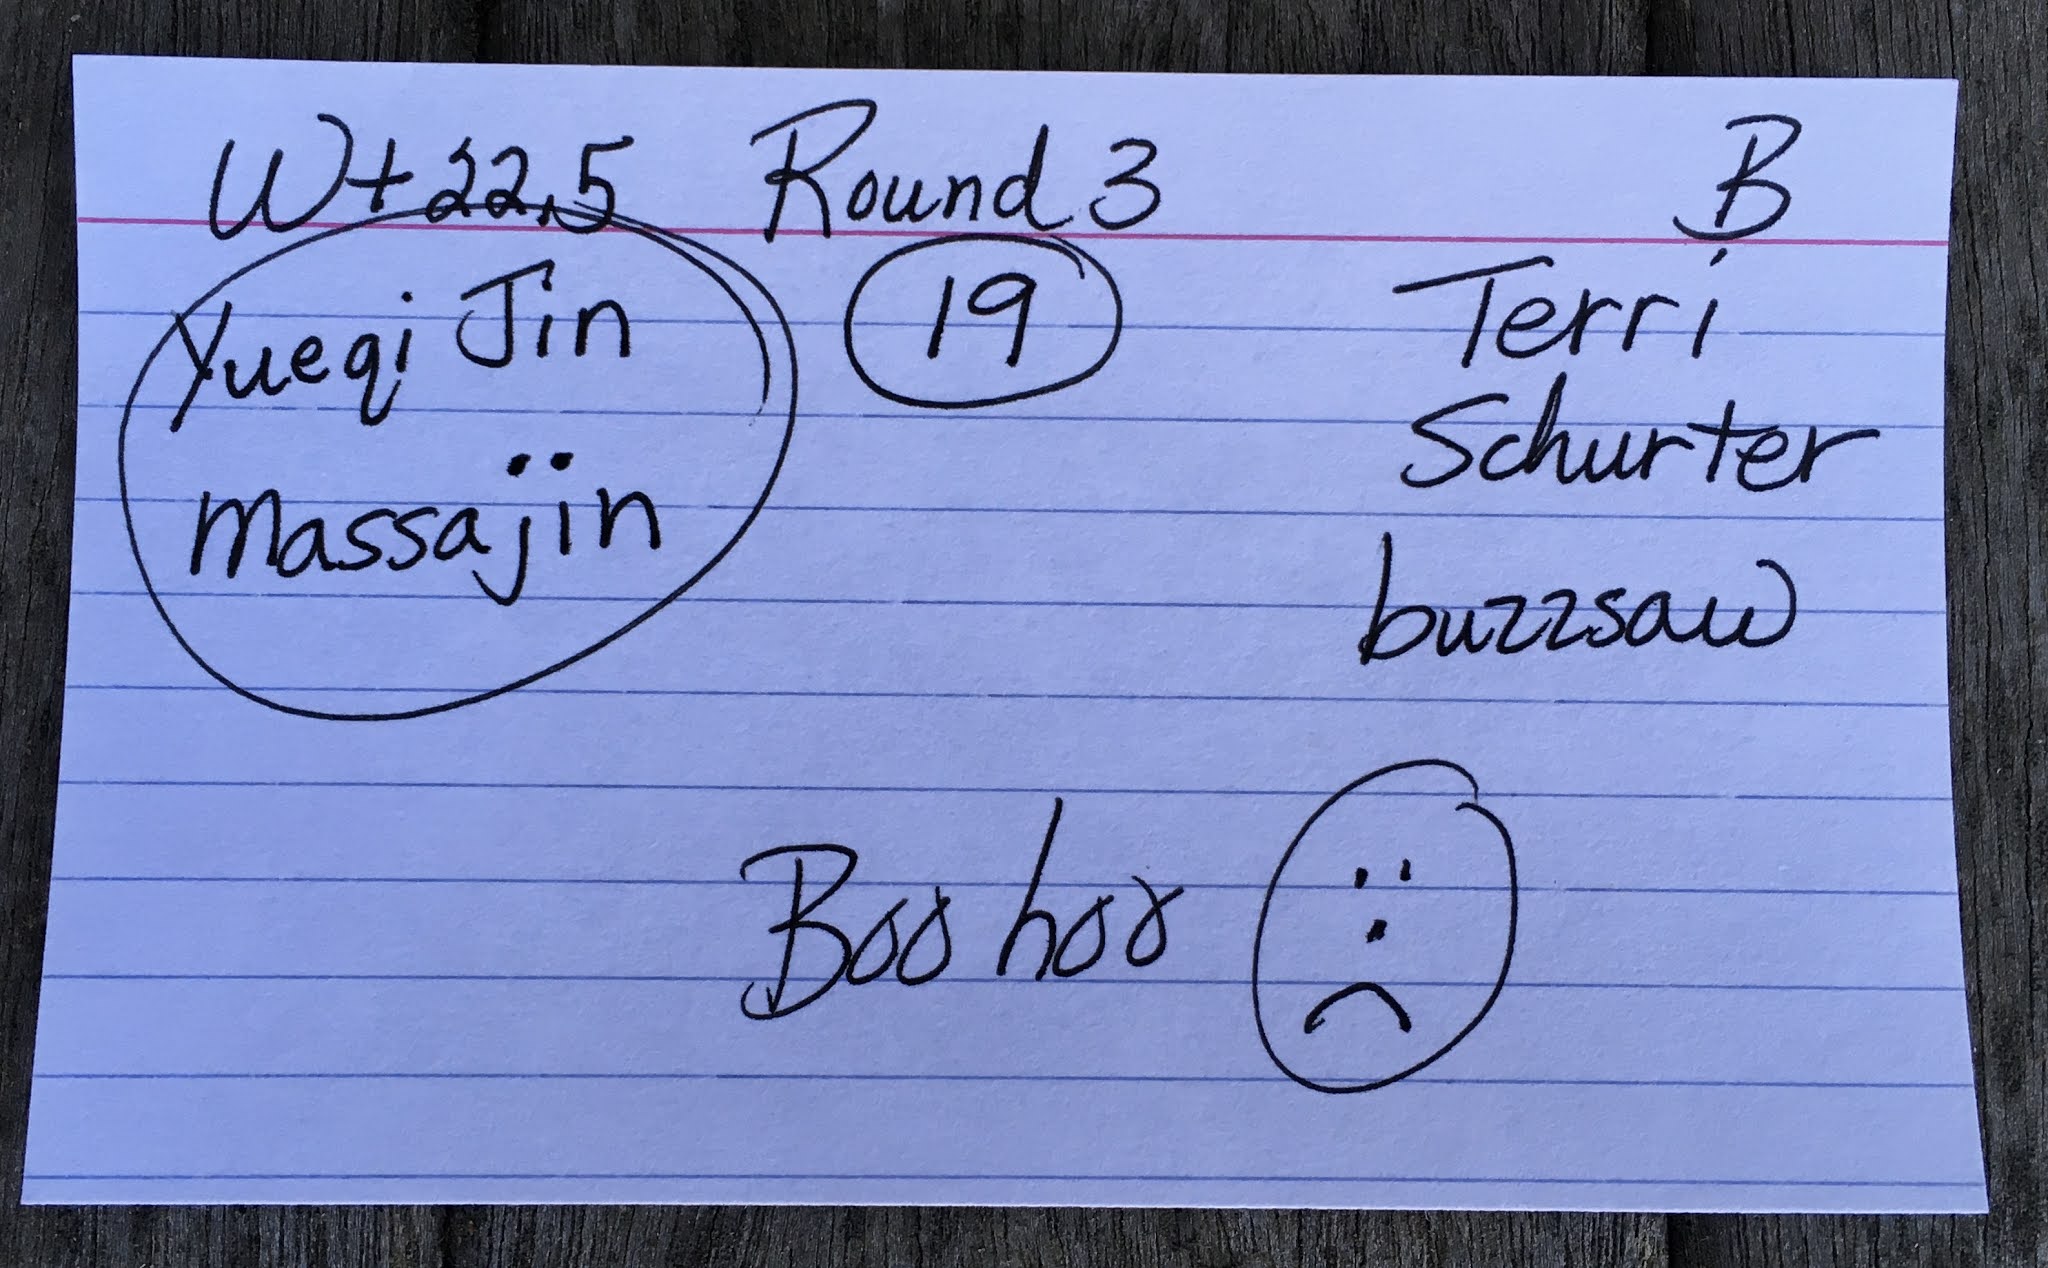 W+22.5 Round 3 B
Yueqi Jin 19 Terri
Schurter
massajin
buzzsaw
Boo hoo